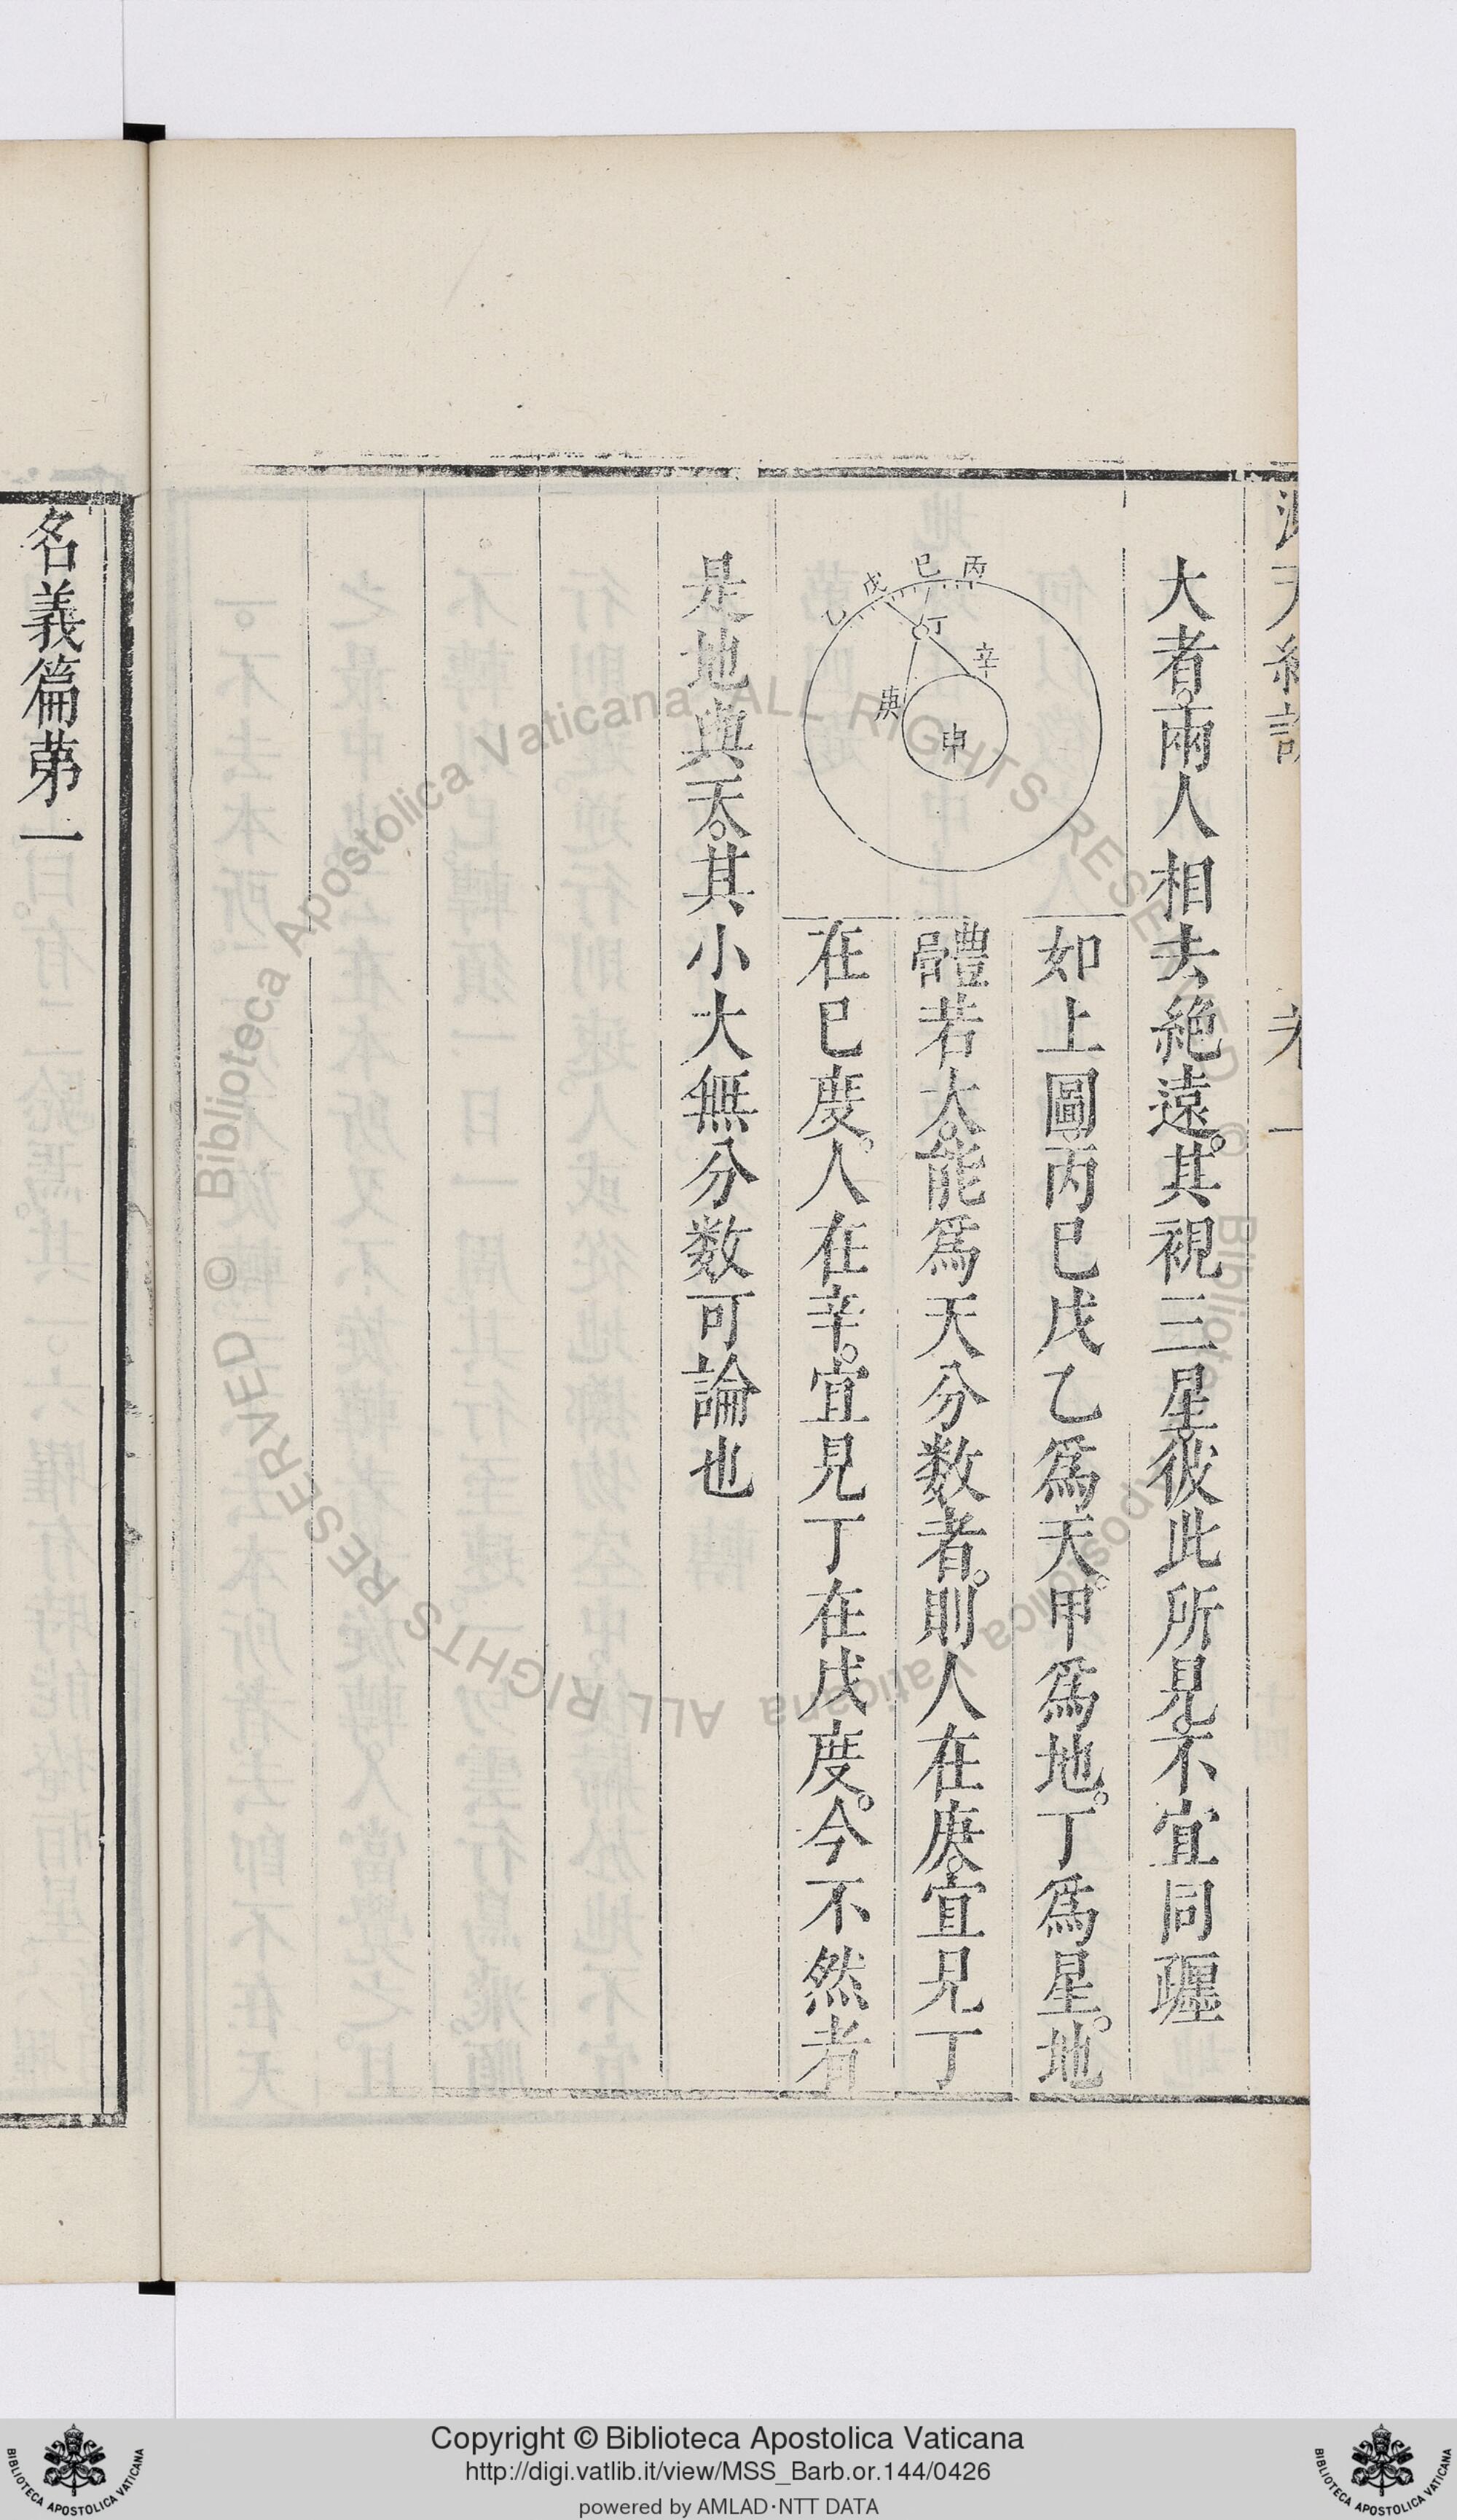 渾天儀說 卷一
大者。兩人相去絕遠。其視三星。彼此所見。不宜同躔
丙
巳
戊
乙
丁
辛
庚
申
如上圖。丙巳戊乙爲天。甲爲地。丁爲星。地
體若大。能爲天分数者。則人在庚。宜見丁
在巳度。人在辛。宜見丁在戊度。今不然者
是地與天。其小大無分数可論也
名義篇第一
Biblioteca Apostolica Vaticana ALL RIGHTS RESERVED © Biblioteca Apostolica Vaticana ALL RIGHTS RESERVED ©
Copyright © Biblioteca Apostolica Vaticana
http://digi.vatlib.it/view/MSS_Barb.or.144/0426
powered by AMLAD·NTT DATA
BIBLIOTECA APOSTOLICA VATICANA
BIBLIOTECA APOSTOLICA VATICANA